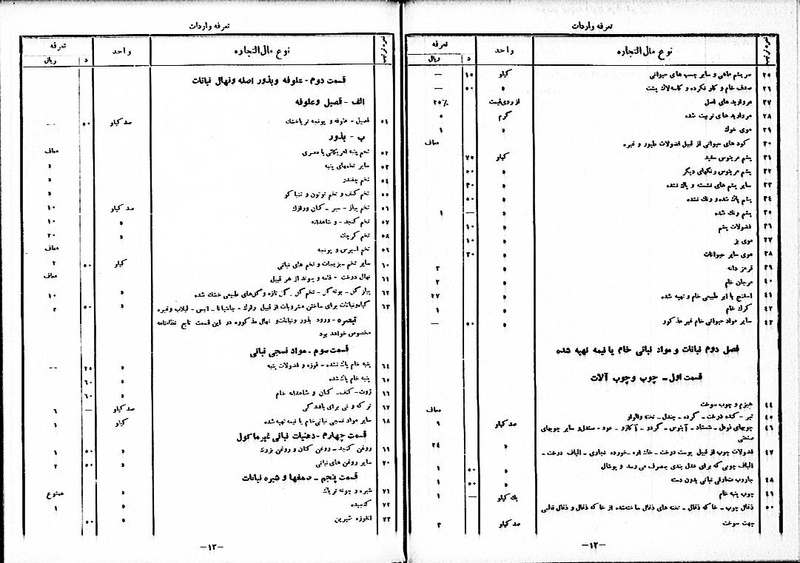 تعرفه واردات
نمره ترتیب نوع مال التجاره واحد تعرفه
د ریال
۲۵ سریشم ماهی و سایر چسب های حیوانی کیلو ۱۵ —
۲۶ صدف خام و کار نکرده و کاسه لاک پشت » ۵۰ —
۲۷ مرواریدهای اصل از روی قیمت ۲۵٪
۲۸ مرواریدهای تربیت شده گرم ۵
۲۹ موی خوک » ۱
۳۰ کود های حیوانی از قبیل فضولات طیور و غیره معاف
۳۱ پشم مرینوس سفید کیلو ۷۵
۳۲ پشم مرینوس رنگهای دیگر » ۵۰
۳۳ سایر پشم های نشسته و پاک نشده » ۳۰
۳۴ پشم پاک شده و رنگ نشده » ۵۰
۳۵ پشم رنگ شده » — ۱
۳۶ فضولات پشم » ۱۰
۳۷ موی بز » ۱۰
۳۸ موی سایر حیوانات » ۳۰
۳۹ قرمز دانه » ۳
۴۰ مرجان خام » ۲
۴۱ اسفنج یا ابر طبیعی خام و تهیه شده » ۲۷
۴۲ کرک خام » ۱
۴۳ سایر مواد حیوانی خام غیر مذکور » ۵۰ —
فصل دوم نباتات و مواد نباتی خام یا نیمه تهیه شده
قسمت اول - چوب و چوب آلات
۴۴ هیزم و چوب سوخت معاف
۴۵ تیر - کنده درخت - گرده - چندل - تخته والوار
۴۶ چوبهای فوفل - شمشاد - آبنوس - گردو - آکاژو - عود - صندل و سایر چوبهای صد کیلو ۹
صنعتی
۴۷ فضولات چوب از قبیل پوست درخت - خاک اره - خورده نجاری - الیاف درخت - » ۲۴
الیاف چوبی که برای عدل بندی بمصرف می رسد و پوشال
۴۸ جاروب متعارفی نباتی بدون دسته » ۵۰ ۱
۴۹ چوب پنبه خام یک کیلو — ۱
۵۰ ذغال چوب - خاکه ذغال - تخته های ذغال ساخته شده از خاکه ذغال و ذغال نباتی
جهت سوخت صد کیلو ۳
—۱۲—
تعرفه واردات
نمره ترتیب نوع مال التجاره واحد تعرفه
د ریال
قسمت دوم - علوفه و بذور اصله و نهال نباتات
الف - قصیل و علوفه
۵۱ قصیل - علوفه و یونجه تر یا خشک صد کیلو ۵۰ —
ب - بذور
۵۲ تخم پنبه امریکائی یا مصری معاف
۵۳ سایر تخمهای پنبه »
۵۴ تخم چغندر »
۵۵ تخم کنف و تخم توتون و تنباکو »
۵۶ تخم پیاز - سیر - کتان و برزک صد کیلو ۱۰
۵۷ تخم کنجد - و شاهدانه » ۱۰
۵۸ تخم کرچک » ۲۰
۵۹ تخم اسپرس و یونجه معاف
۶۰ سایر تخم سبزیجات و تخم های نباتی کیلو ۵۰ ۲
۶۱ نهال درخت - قلمه و پیوند از هر قبیل معاف
۶۲ پیاز گل - بوته گل - تخم گل - گل تازه و گلهای طبیعی خشک شده » ۱۰
۶۳ گیاه و نباتات برای ساختن مشروبات از قبیل رازک - جنتیانا - انیس - لبلاب وغیره » ۵۰ ۲
تبصره - ورود بذور و نباتات و نهال مذکوره در این قسمت تابع نظامنامه
مخصوص خواهد بود
قسمت سوم - مواد نسجی نباتی
۶۴ پنبه خام پاک نشده - قوزه و فضولات پنبه » ۲۵ —
۶۵ پنبه خام پاک شده » ۶۰
۶۶ ژوت - کنف - کتان و شاهدانه خام » ۶۰
۶۷ ترکه و نی برای بافندگی صد کیلو — ۶
۶۸ سایر مواد نسجی نباتی خام یا نیمه تهیه شده کیلو ۱
قسمت چهارم - دهنیات نباتی غیر ماکول
۶۹ روغن کنجد - روغن کتان و روغن بزرک » ۵۰ ۱
۷۰ سایر روغن های نباتی » ۵۰ ۲
قسمت پنجم - صمغها و شیره نباتات
۷۱ شیره و جونه تریاک » ممنوع
۷۲ کتیرا » ۱
۷۳ انغوزه شیرین » ۵۰
—۱۳—